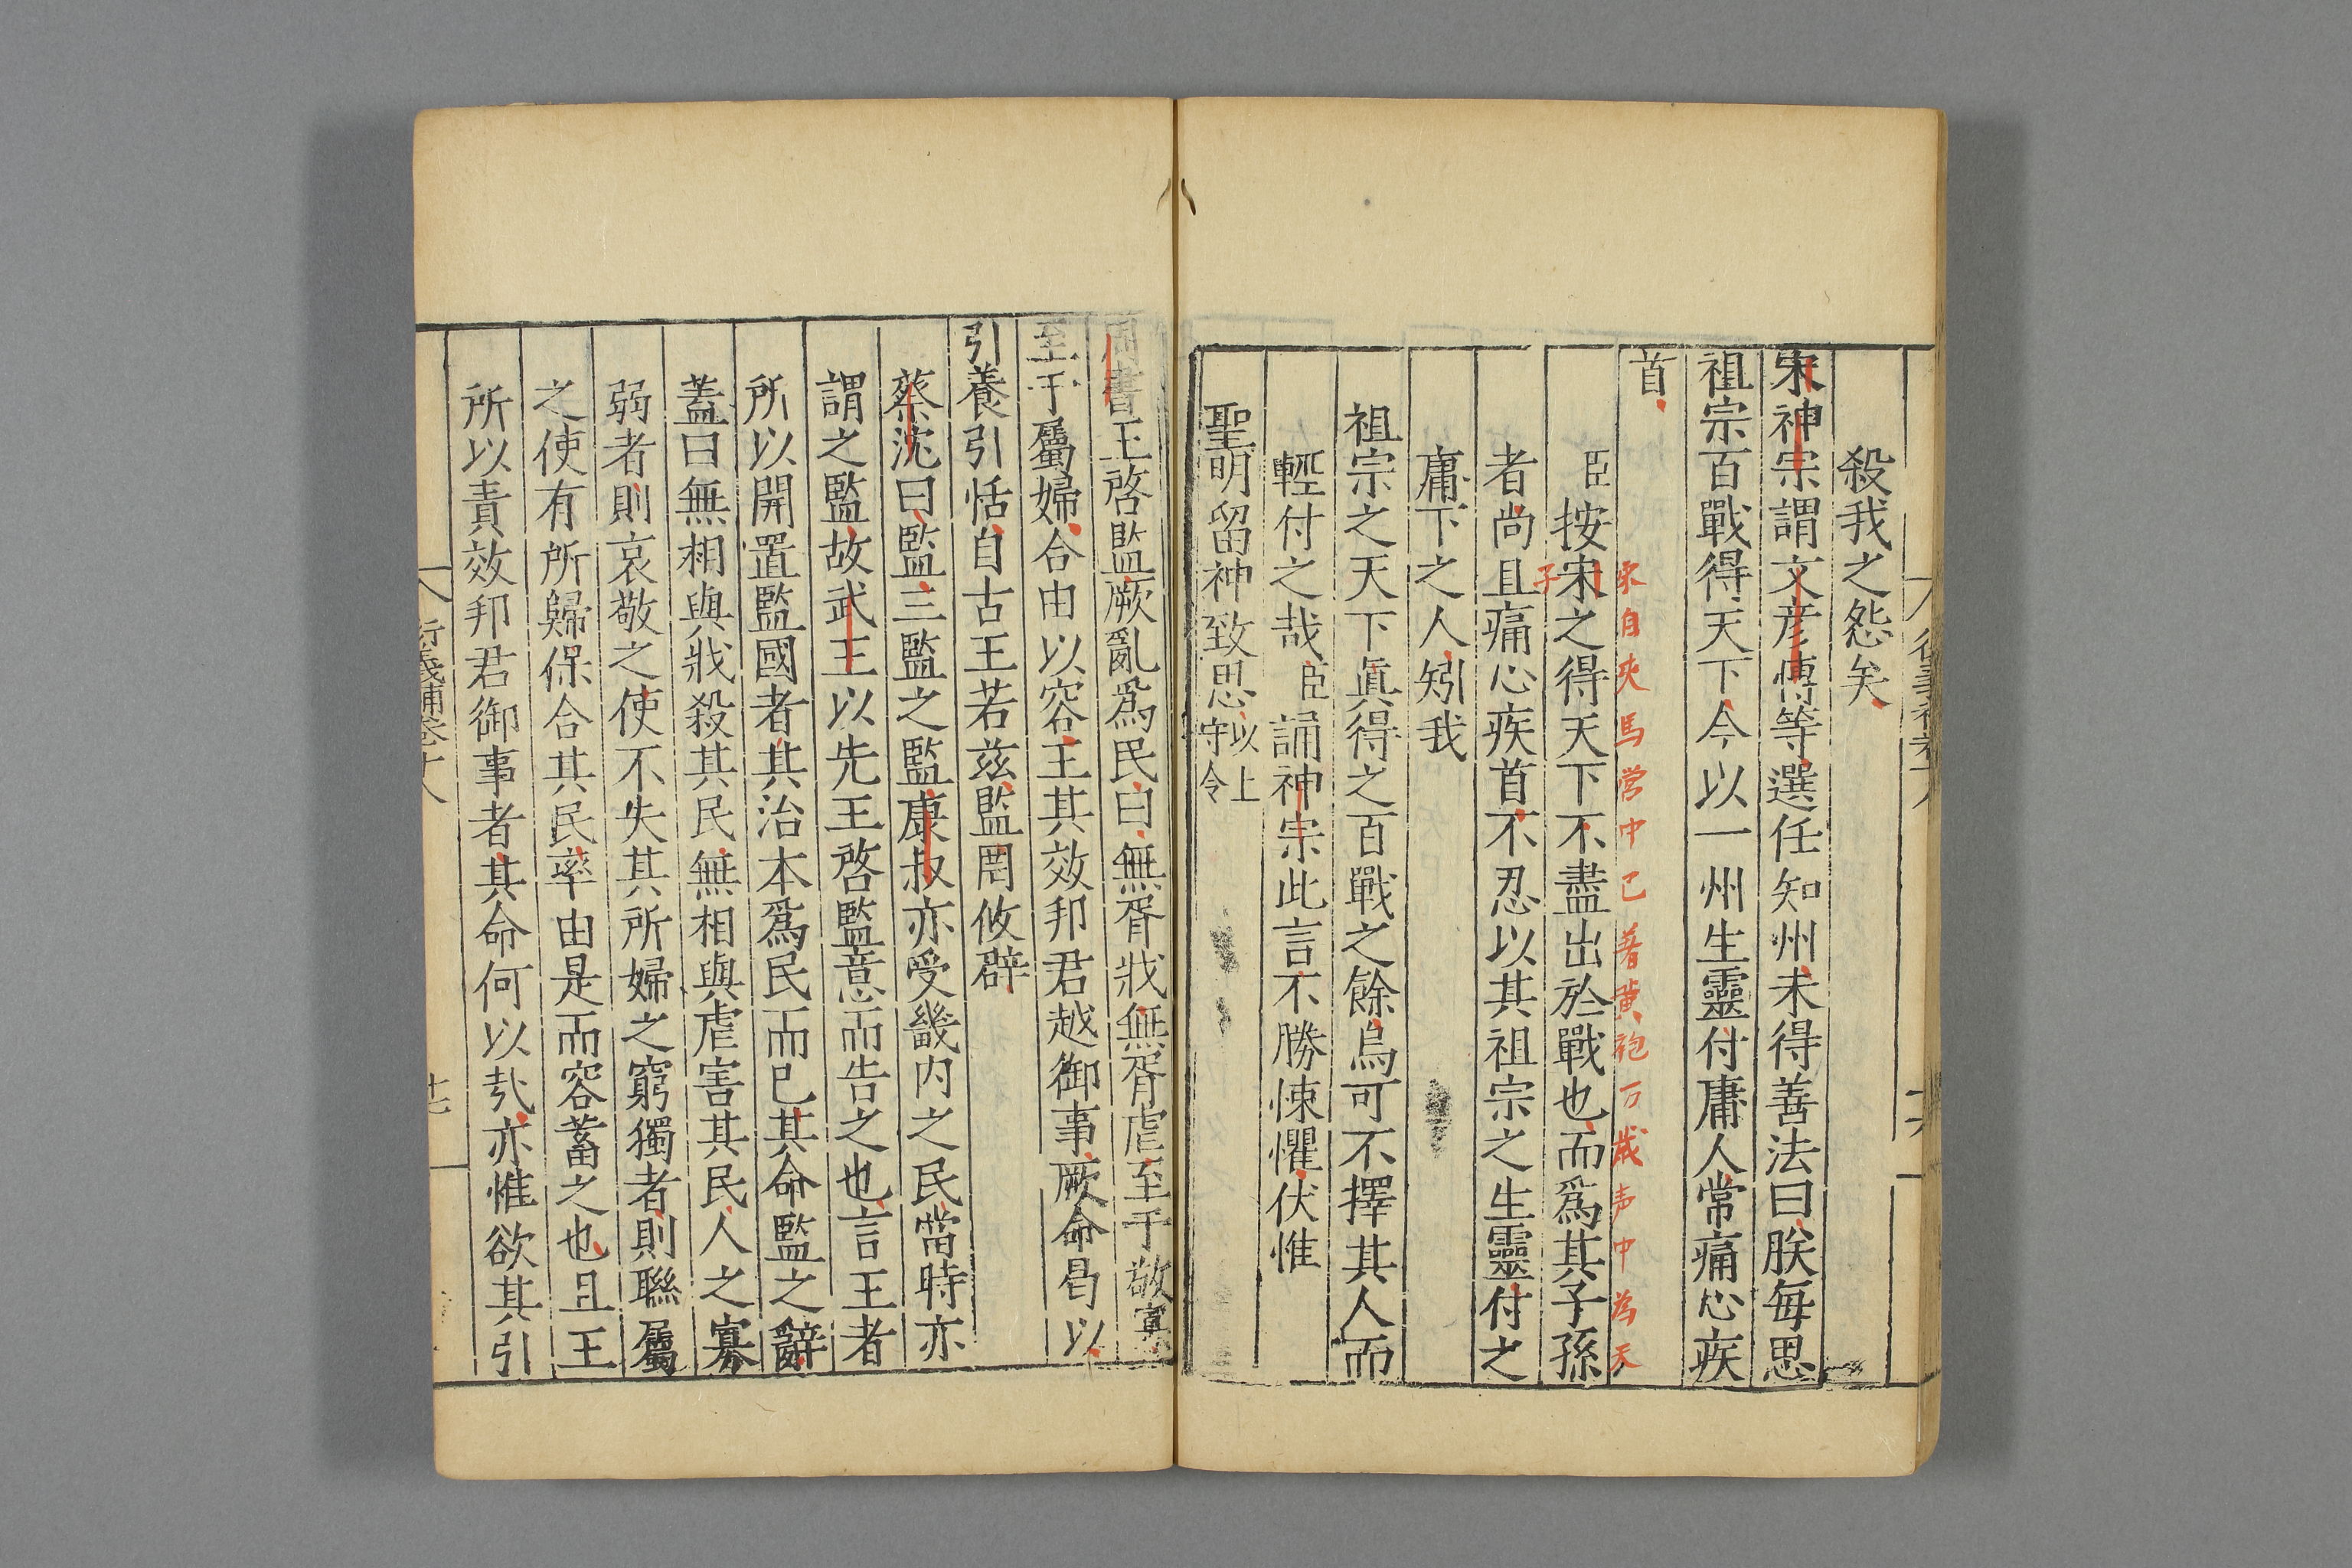 殺我之怨矣
宋神宗謂文彦博等選任知州未得善法曰朕每思
祖宗百戰得天下今以一州生靈付庸人常痛心疾
首
宋自夾馬営中已著黄袍万歳声中為天
子
臣按宋之得天下不盡出於戰也而爲其子孫
者尚且痛心疾首不忍以其祖宗之生靈付之
庸下之人矧我
祖宗之天下眞得之百戰之餘烏可不擇其人而
輕付之哉臣誦神宗此言不勝悚懼伏惟
聖明留神致思以上
守令
周書王啓監厥亂爲民曰無胥戕無胥虐至于敬寡
至于屬婦合由以容王其效邦君越御事厥命曷以
引養引恬自古王若兹監罔攸辟
蔡沈曰監三監之監康叔亦受畿内之民當時亦
謂之監故武王以先王啓監意而告之也言王者
所以開置監國者其治本爲民而已其命監之辭
蓋曰無相與戕殺其民無相與虐害其民人之寡
弱者則哀敬之使不失其所婦之窮獨者則聯屬
之使有所歸保合其民率由是而容蓄之也且王
所以責效邦君御事者其命何以㢤亦惟欲其引
衍義補卷十八
十七